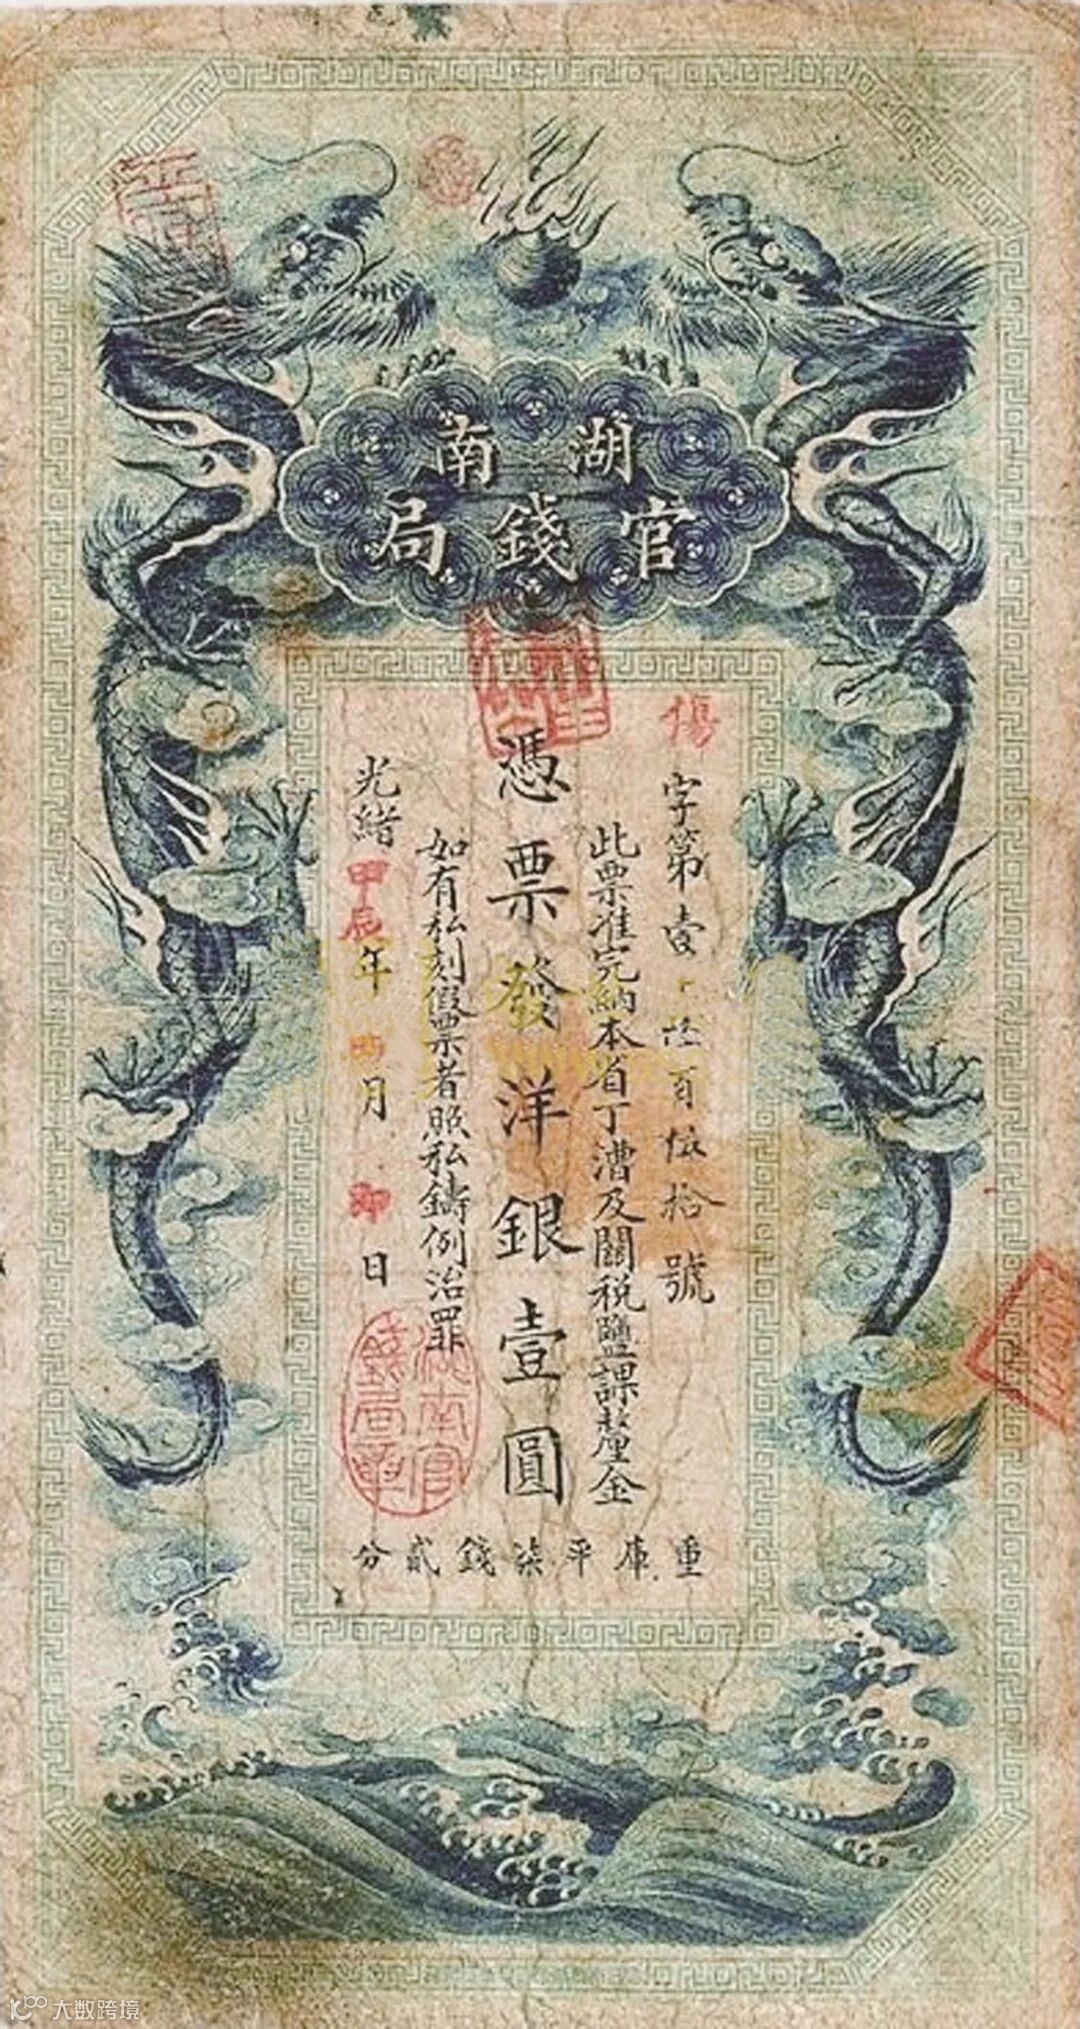 湖南
官錢局
字第壹 百伍拾號
此票准完納本省丁漕及關税鹽課釐金
憑票發洋銀壹圓
如有私刻假票者照私鑄例治罪
光緒甲辰年 月 日
重庫平柒錢貳分
湖南官錢局章
大数跨境